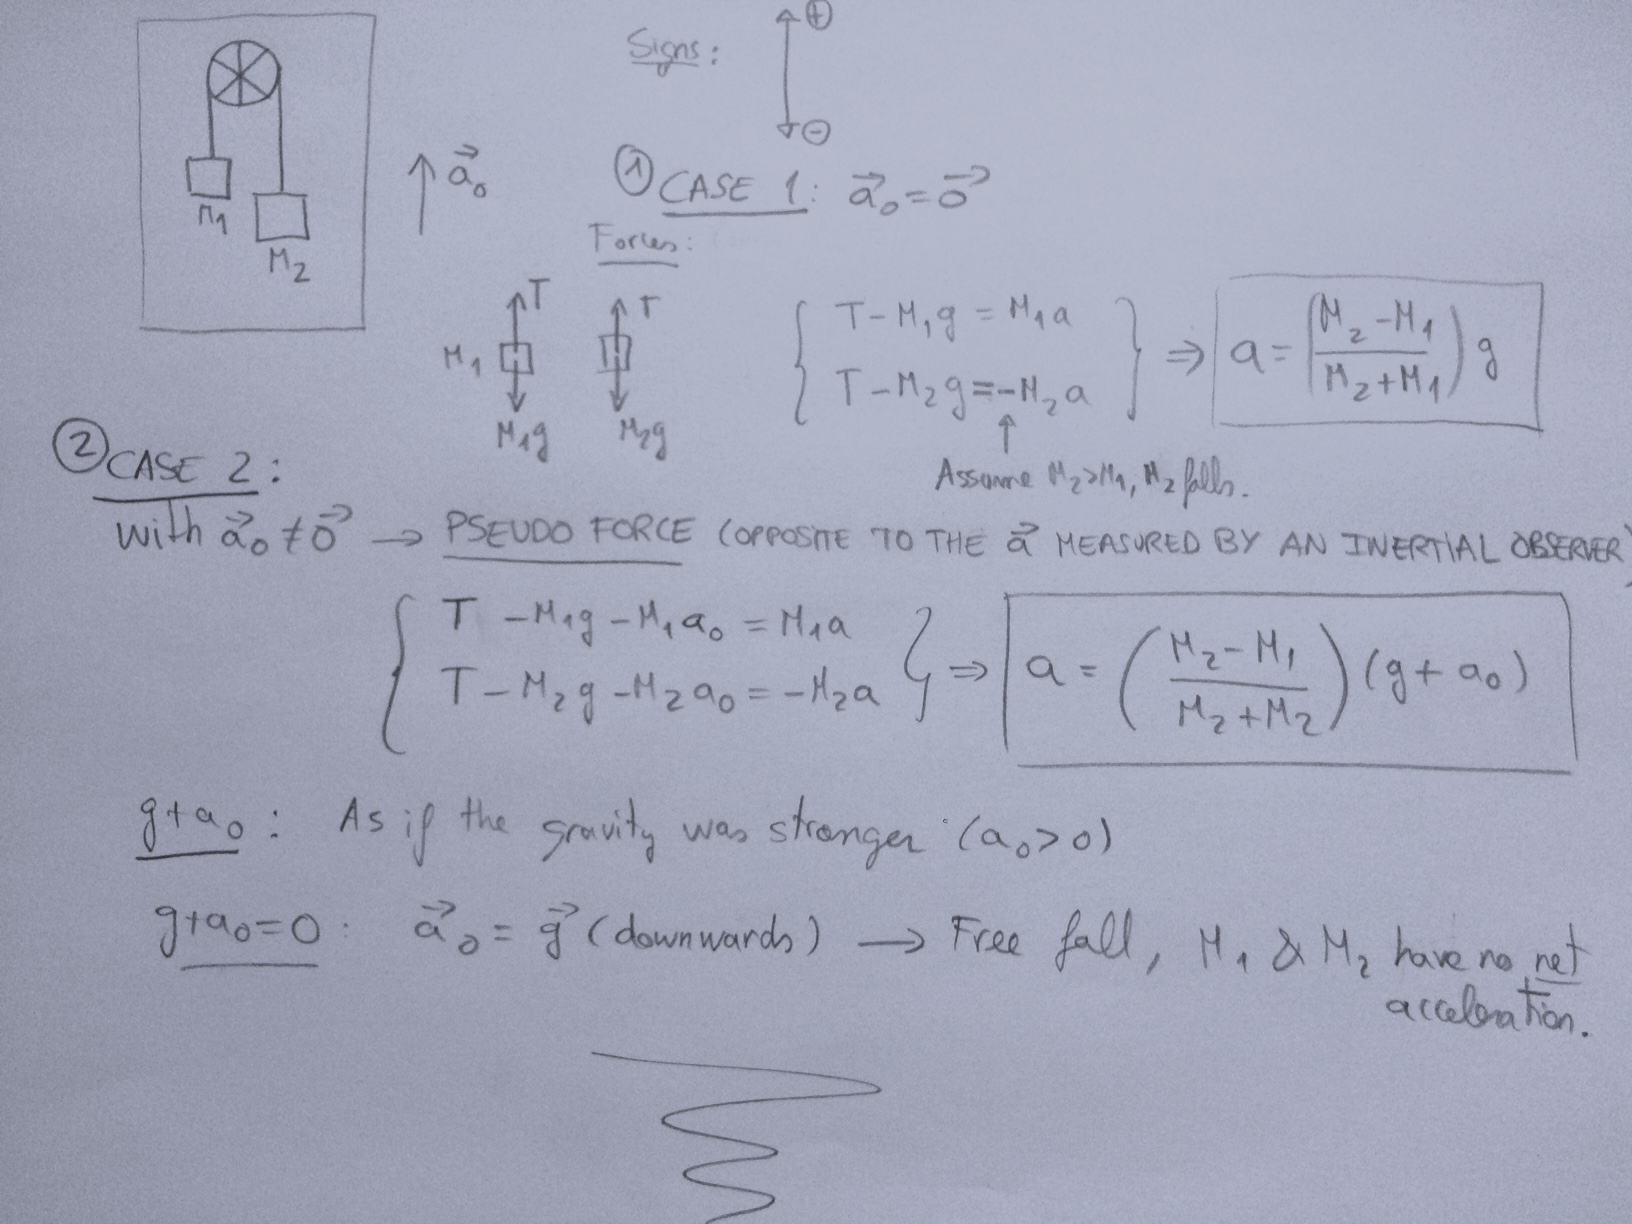 Signs: ⊕
⊖
M1
M2
↑ a⃗₀
① CASE 1: a⃗₀ = 0⃗
Forces:
T T
M1
M₁g M₂g
{ T - M₁g = M₁a
T - M₂g = -M₂a } ⇒ a = (M₂ - M₁ / M₂ + M₁) g
↑
Assume M₂>M₁, M₂ falls.
② CASE 2:
with a⃗₀ ≠ 0⃗ → PSEUDO FORCE (OPPOSITE TO THE a⃗ MEASURED BY AN INERTIAL OBSERVER)
{ T - M₁g - M₁a₀ = M₁a
T - M₂g - M₂a₀ = -M₂a } ⇒ a = (M₂ - M₁ / M₂ + M₂) (g + a₀)
g+a₀: As if the gravity was stronger (a₀>0)
g+a₀=0: a⃗₀ = g⃗ (downwards) → Free fall, M₁ & M₂ have no net
acceleration.